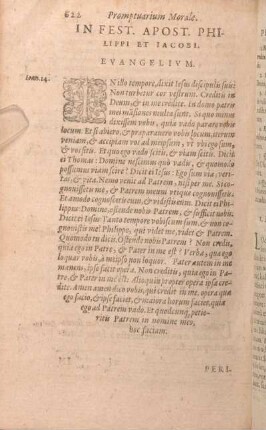 622 Promptuarium Morale.
IN FEST. APOST. PHI-
LIPPI ET IACOBI.
EVANGELIVM.
Ioan. 14.
IN illo tempore, dixit Iesus discipulis suis:
Non turbetur cor vestrum. Creditis in
Deum, & in me credite. In domo patris
mei mansiones multæ sunt. Si quo minus
dixissem vobis, quia vado parare vobis
locum. Et si abiero, & præparauero vobis locum, iterum
veniam, & accipiam vos ad meipsum, vt vbi ego sum,
& vos sitis. Et quo ego vado scitis, & viam scitis. Dicit
ei Thomas: Domine nescimus quò vadis, & quomodo
possumus viam scire? Dicit ei Iesus: Ego sum via, ve-
ritas, & vita. Nemo venit ad Patrem, nisi per me. Si co-
gnouissetis me, & Patrem meum vtique cognouissetis.
Et amodo cognoscetis eum, & vidistis eum. Dicit ei Phi-
lippus: Domine, ostende nobis Patrem, & sufficit nobis.
Dicit ei Iesus: Tanto tempore vobiscum sum, & non co-
gnouistis me? Philippe, qui videt me, videt & Patrem.
Quomodo tu dicis: Ostende nobis Patrem? Non credis,
quia ego in Patre, & Pater in me est? Verba, quæ ego
loquor vobis, à meipso non loquor. Pater autem in me
manens, ipse facit opera. Non creditis, quia ego in Pa-
tre, & Pater in me est? Alioquin propter opera ipsa cre-
dite. Amen amen dico vobis, qui credit in me, opera quæ
ego facio, & ipse faciet, & maiora horum faciet, quia
ego ad Patrem vado. Et quodcunq; petie-
ritis Patrem in nomine meo,
hoc faciam.
PERI-